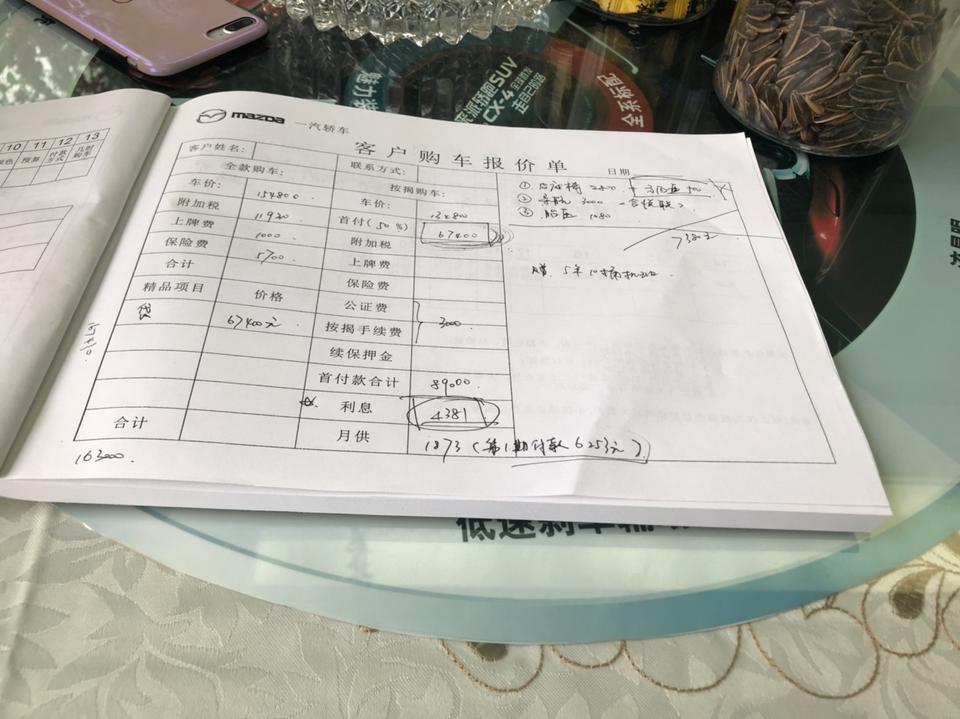 mazda 一汽轿车
客户购车报价单
客户姓名：
联系方式：
日期
全款购车：
按揭购车：
车价： 154800
车价： 134800
附加税 11920
首付（50%） 67400
上牌费 1000
附加税
保险费 5700
上牌费
合计
保险费
精品项目 价格
公证费
贷 67400元
按揭手续费 3000
续保押金
首付款合计 89000
利息 4381
合计
月供 1873（第1期付款6253元）
163000
① 2800
② 导航 3000
③ 胎压 1080
7380元
10 11 12 13
预算 付款方式 几时购车
魅力
全系标配
低速刹车辅